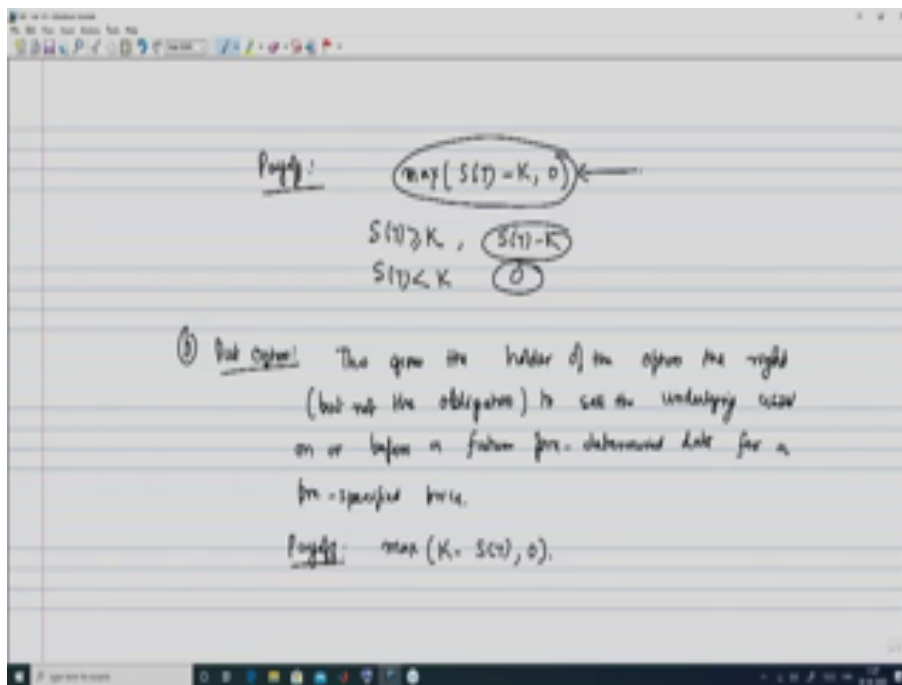 Payoff: max(S(T) - K, 0)
S(T) ≥ K, S(T) - K
S(T) < K 0
② Put Option: This gives the holder of the option the right
(but not the obligation) to sell the underlying asset
on or before a future pre-determined date for a
pre-specified price.
Payoff: max(K - S(T), 0).